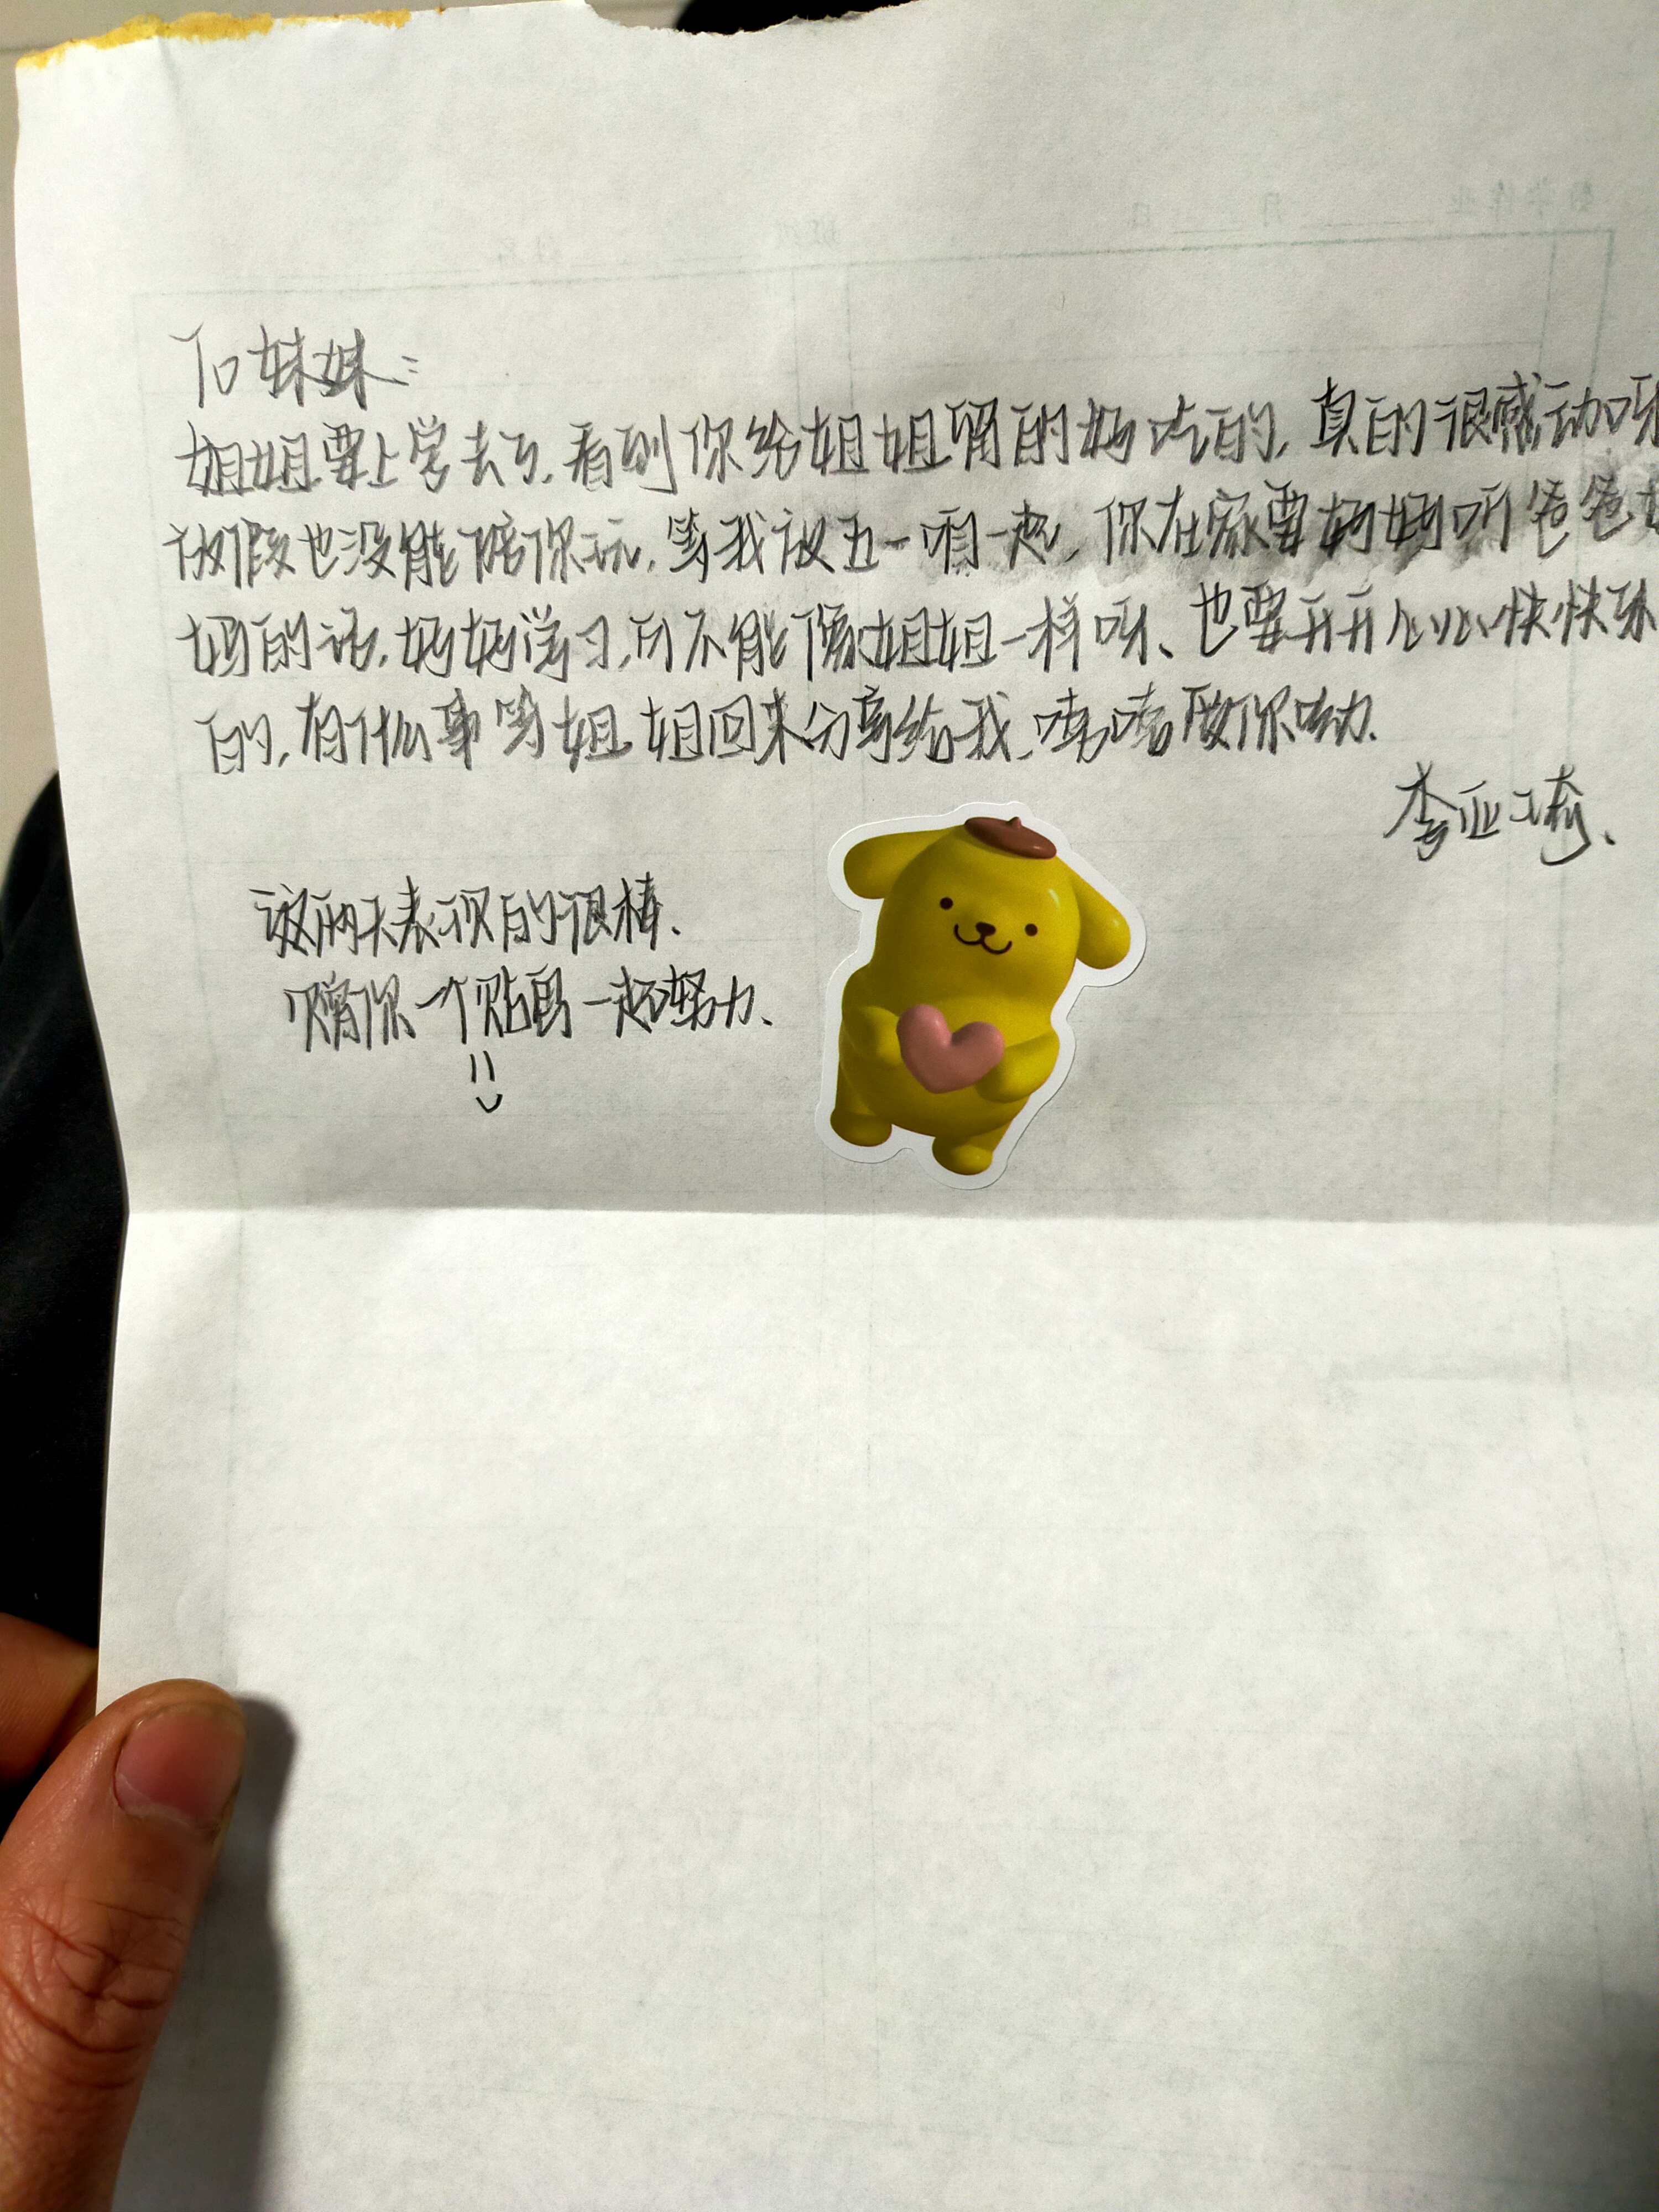 To 妹妹:
姐姐要上学去了,看到你给姐姐留的好吃的,真的很感动呀
放假也没能陪你玩,等我放五一咱一起,你在家要好好听爸爸妈
妈的话,好好学习,可不能像姐姐一样呀、也要开开心心快快乐
的,有什么事等姐姐回来分享给我,嘻嘻
李亚琦、
这两天表现的很棒、
赠你一个贴画一起努力、